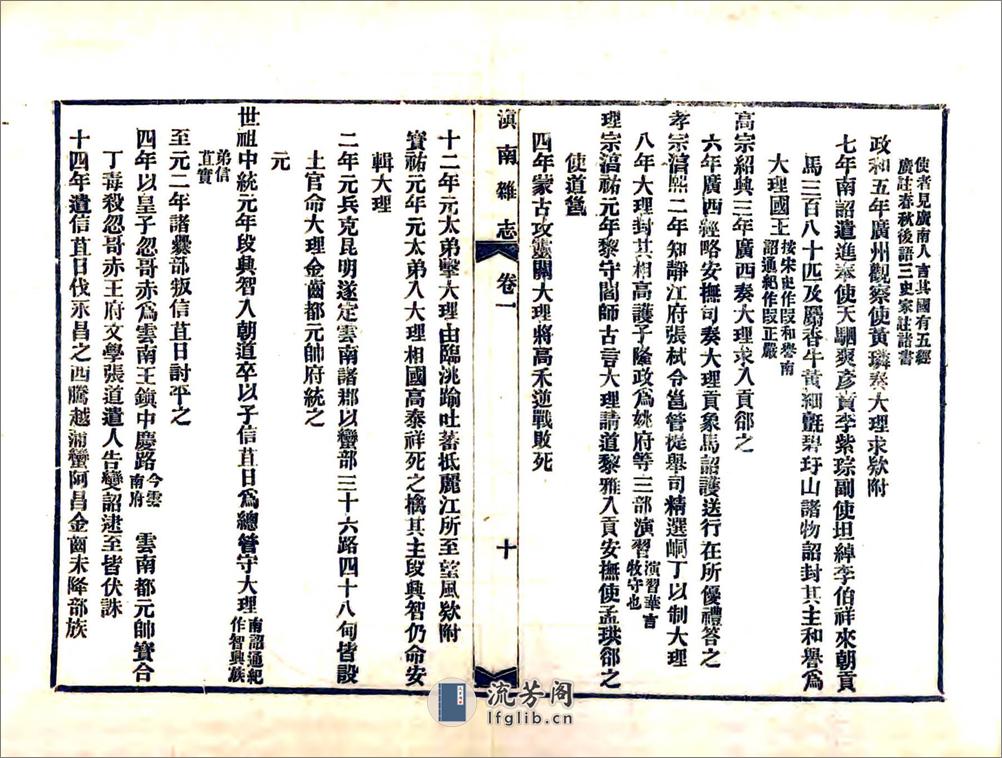 使者見廣南人言其國有五經
廣註春秋後語三史家註諸書
政和五年廣州觀察使黃璘奏大理求欵附
七年南詔遣進奉使天駟爽彥賁李紫琮副使坦綽李伯祥來朝貢
馬三百八十匹及麝香牛黃細氊碧玕山諸物詔封其主和譽爲
大理國王按宋史作叚和譽南
詔通紀作叚正嚴
高宗紹興三年廣西奏大理求入貢卻之
六年廣西經略安撫司奏大理貢象馬詔護送行在所優禮答之
孝宗淳熙二年知靜江府張栻令邕管提舉司精選峒丁以制大理
八年大理封其相高護子隆政爲姚府等三部演習演習華言
牧守也
理宗淳祐元年黎守閻師古言大理請道黎雅入貢安撫使孟珙卻之
使道邕
四年蒙古攻靈關大理將高禾逆戰敗死
滇南雜志
卷一
十
十二年元太弟擊大理由臨洮踰吐蕃抵麗江所至望風欵附
寶祐元年元太弟入大理相國高泰祥死之擒其主段興智仍命安
輯大理
二年元兵克昆明遂定雲南諸郡以蠻部三十六路四十八甸皆設
土官命大理金齒都元帥府統之
元
世祖中統元年段興智入朝道卒以子信苴日爲總管守大理南詔通紀
作智興族
弟信
苴實
至元二年諸爨部叛信苴日討平之
四年以皇子忽哥赤爲雲南王鎮中慶路今雲
南府
雲南都元帥寶合
丁毒殺忽哥赤王府文學張道遣人告變詔逮至皆伏誅
十四年遣信苴日伐永昌之西騰越蒲蠻阿昌金齒未降部族
流芳阁
lfglib.cn